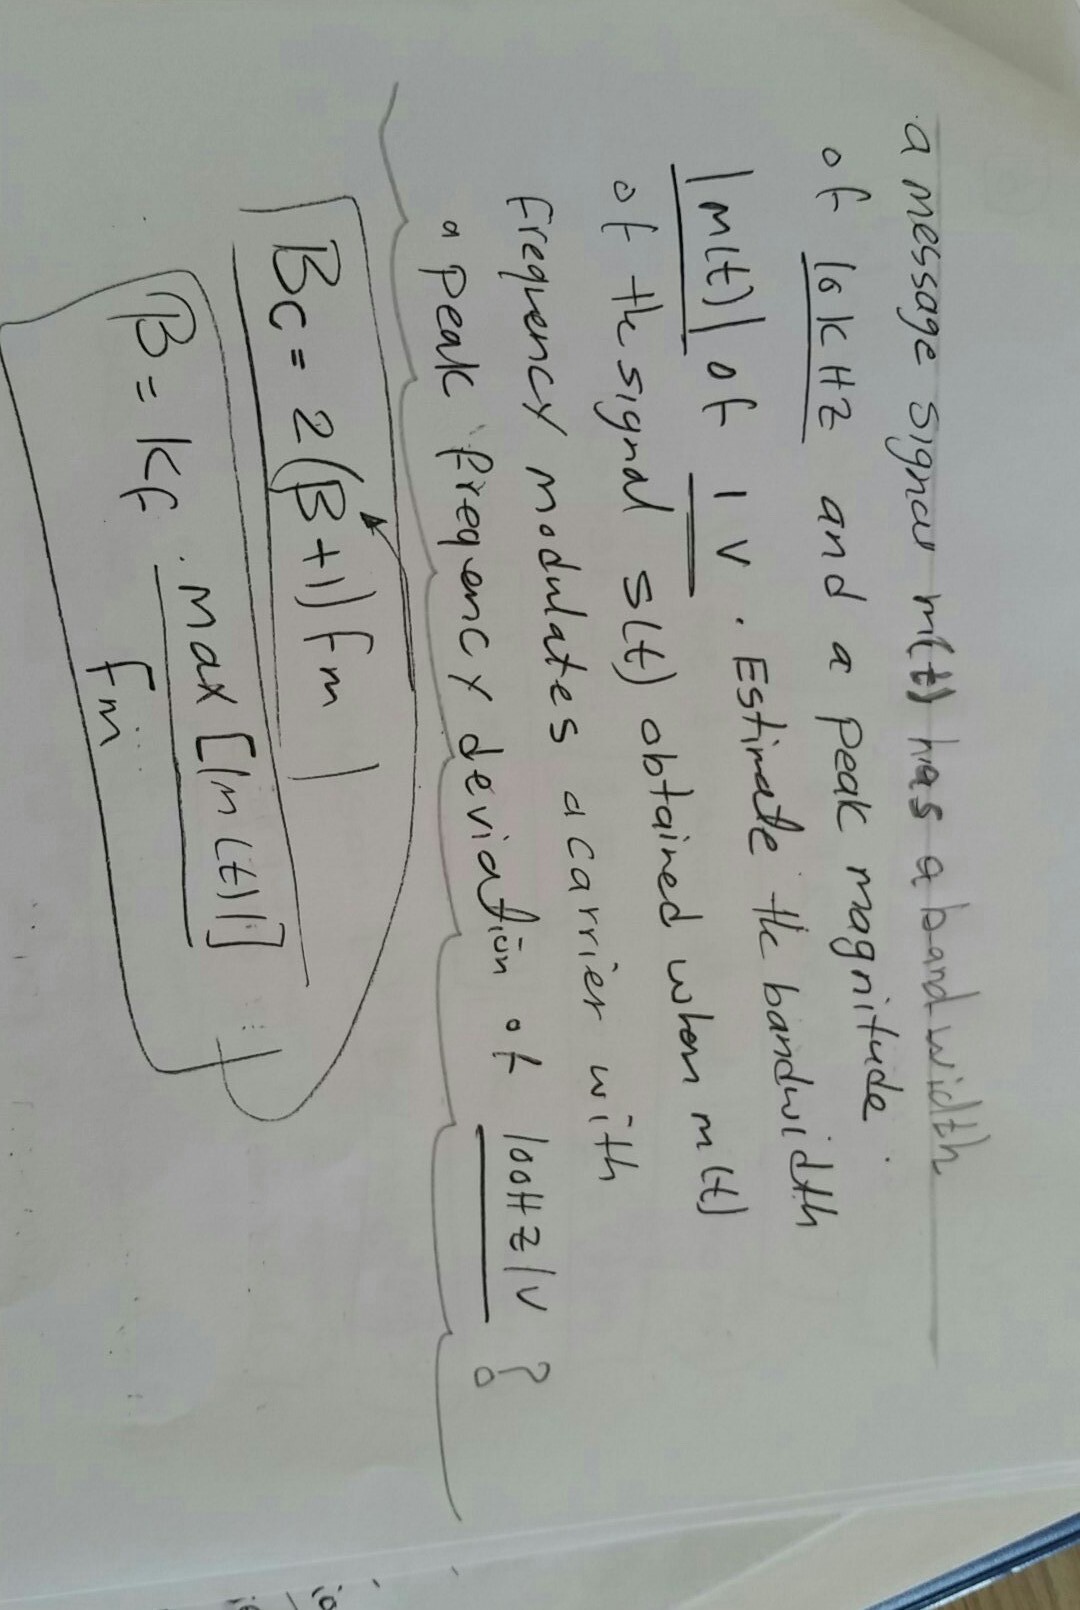 a message signal m(t) has a bandwidth
of 10 kHz and a peak magnitude
|m(t)| of 1 v. Estimate the bandwidth
of the signal s(t) obtained when m(t)
frequency modulates a carrier with
a peak frequency deviation of 100Hz/v ?
Bc = 2(β+1) fm
β = kf . max [|m(t)|]
fm